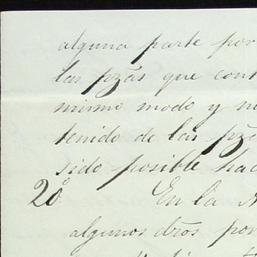 alguna parte por
las pzãs que cont
mismo modo y m
tenido de las pzã
sido posible hac
20º En la
algunos drõs por